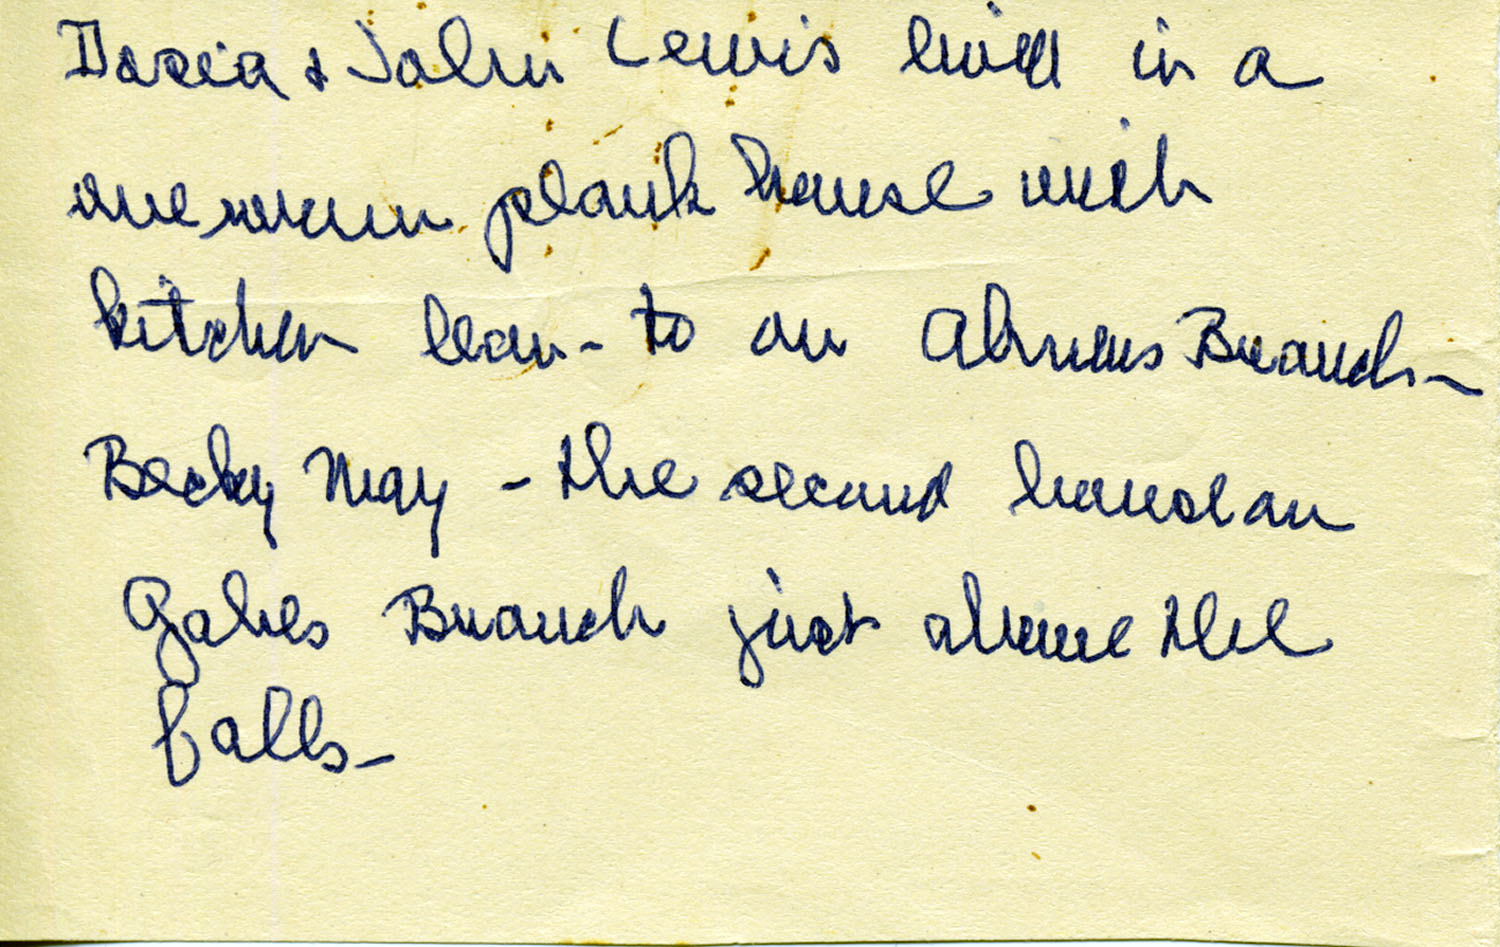 Docia & John Lewis lived in a
one room plank house with
kitchen lean-to on Abrems Branch -
Becky May - the second house on
Gabes Branch just above the
falls -